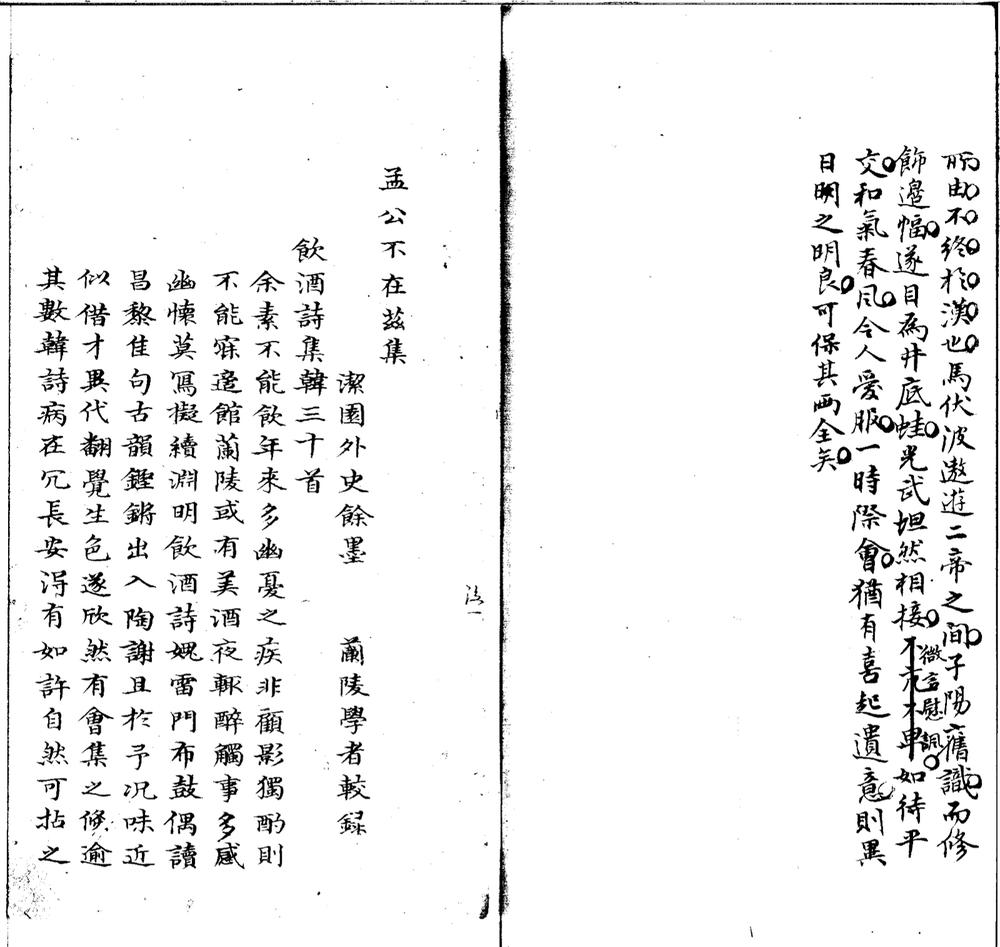 所由不終於漢也馬伏波遨遊二帝之間子陽舊識而修
飾邊幅遂目為井底蛙光武坦然相接不亢不卑如待平
微言慰調
交和氣春風令人愛服一時際會猶有喜起遺意則異
日明之明良可保其兩全矣
孟公不在茲集
潔園外史餘墨 蘭陵學者較錄
飲酒詩集韓三十首
余素不能飲年來多幽憂之疾非顧影獨酌則
不能寐適館蘭陵或有美酒夜輒醉觸事多感
幽懷莫寫擬續淵明飲酒詩媿雷門布鼓偶讀
昌黎佳句古韻鏗鏘出入陶謝且於予况味近
似借才異代翻覺生色遂欣然有會集之倏逾
其數韓詩病在冗長安得有如許自然可拈之